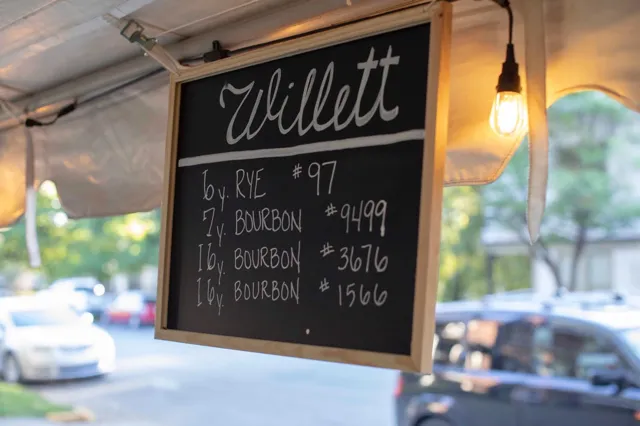 Willett
6y. RYE #97
7y. BOURBON #9499
16y. BOURBON #3676
16y. BOURBON #1566